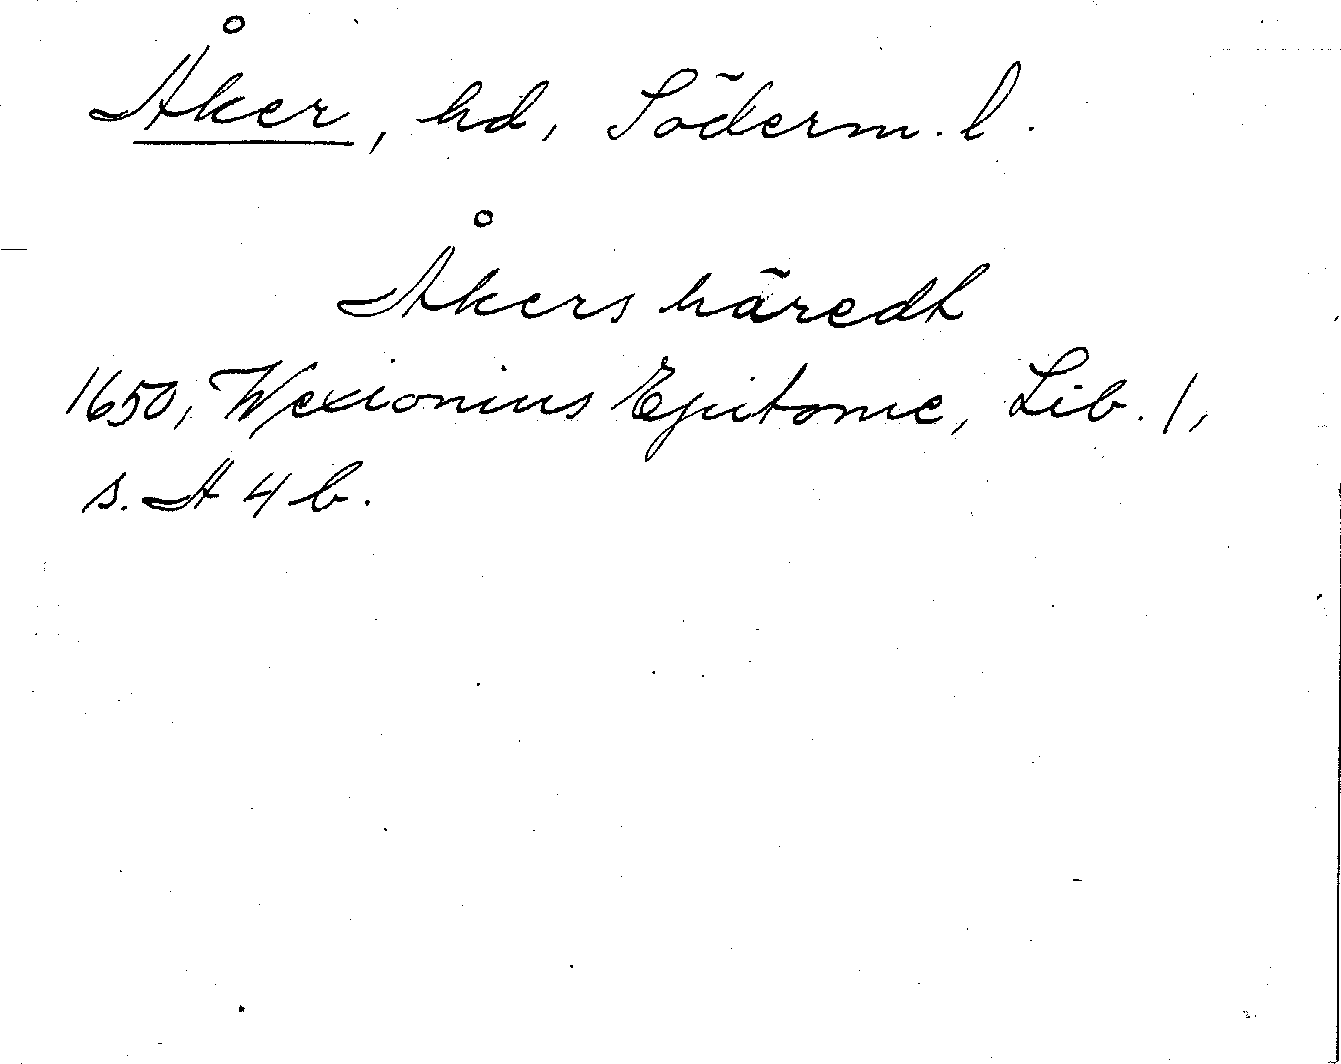 Åker, hd, Söderm. l.
Åkers häredt
1650, Wexionius Epitome, Lib. 1,
s. A 4 b.